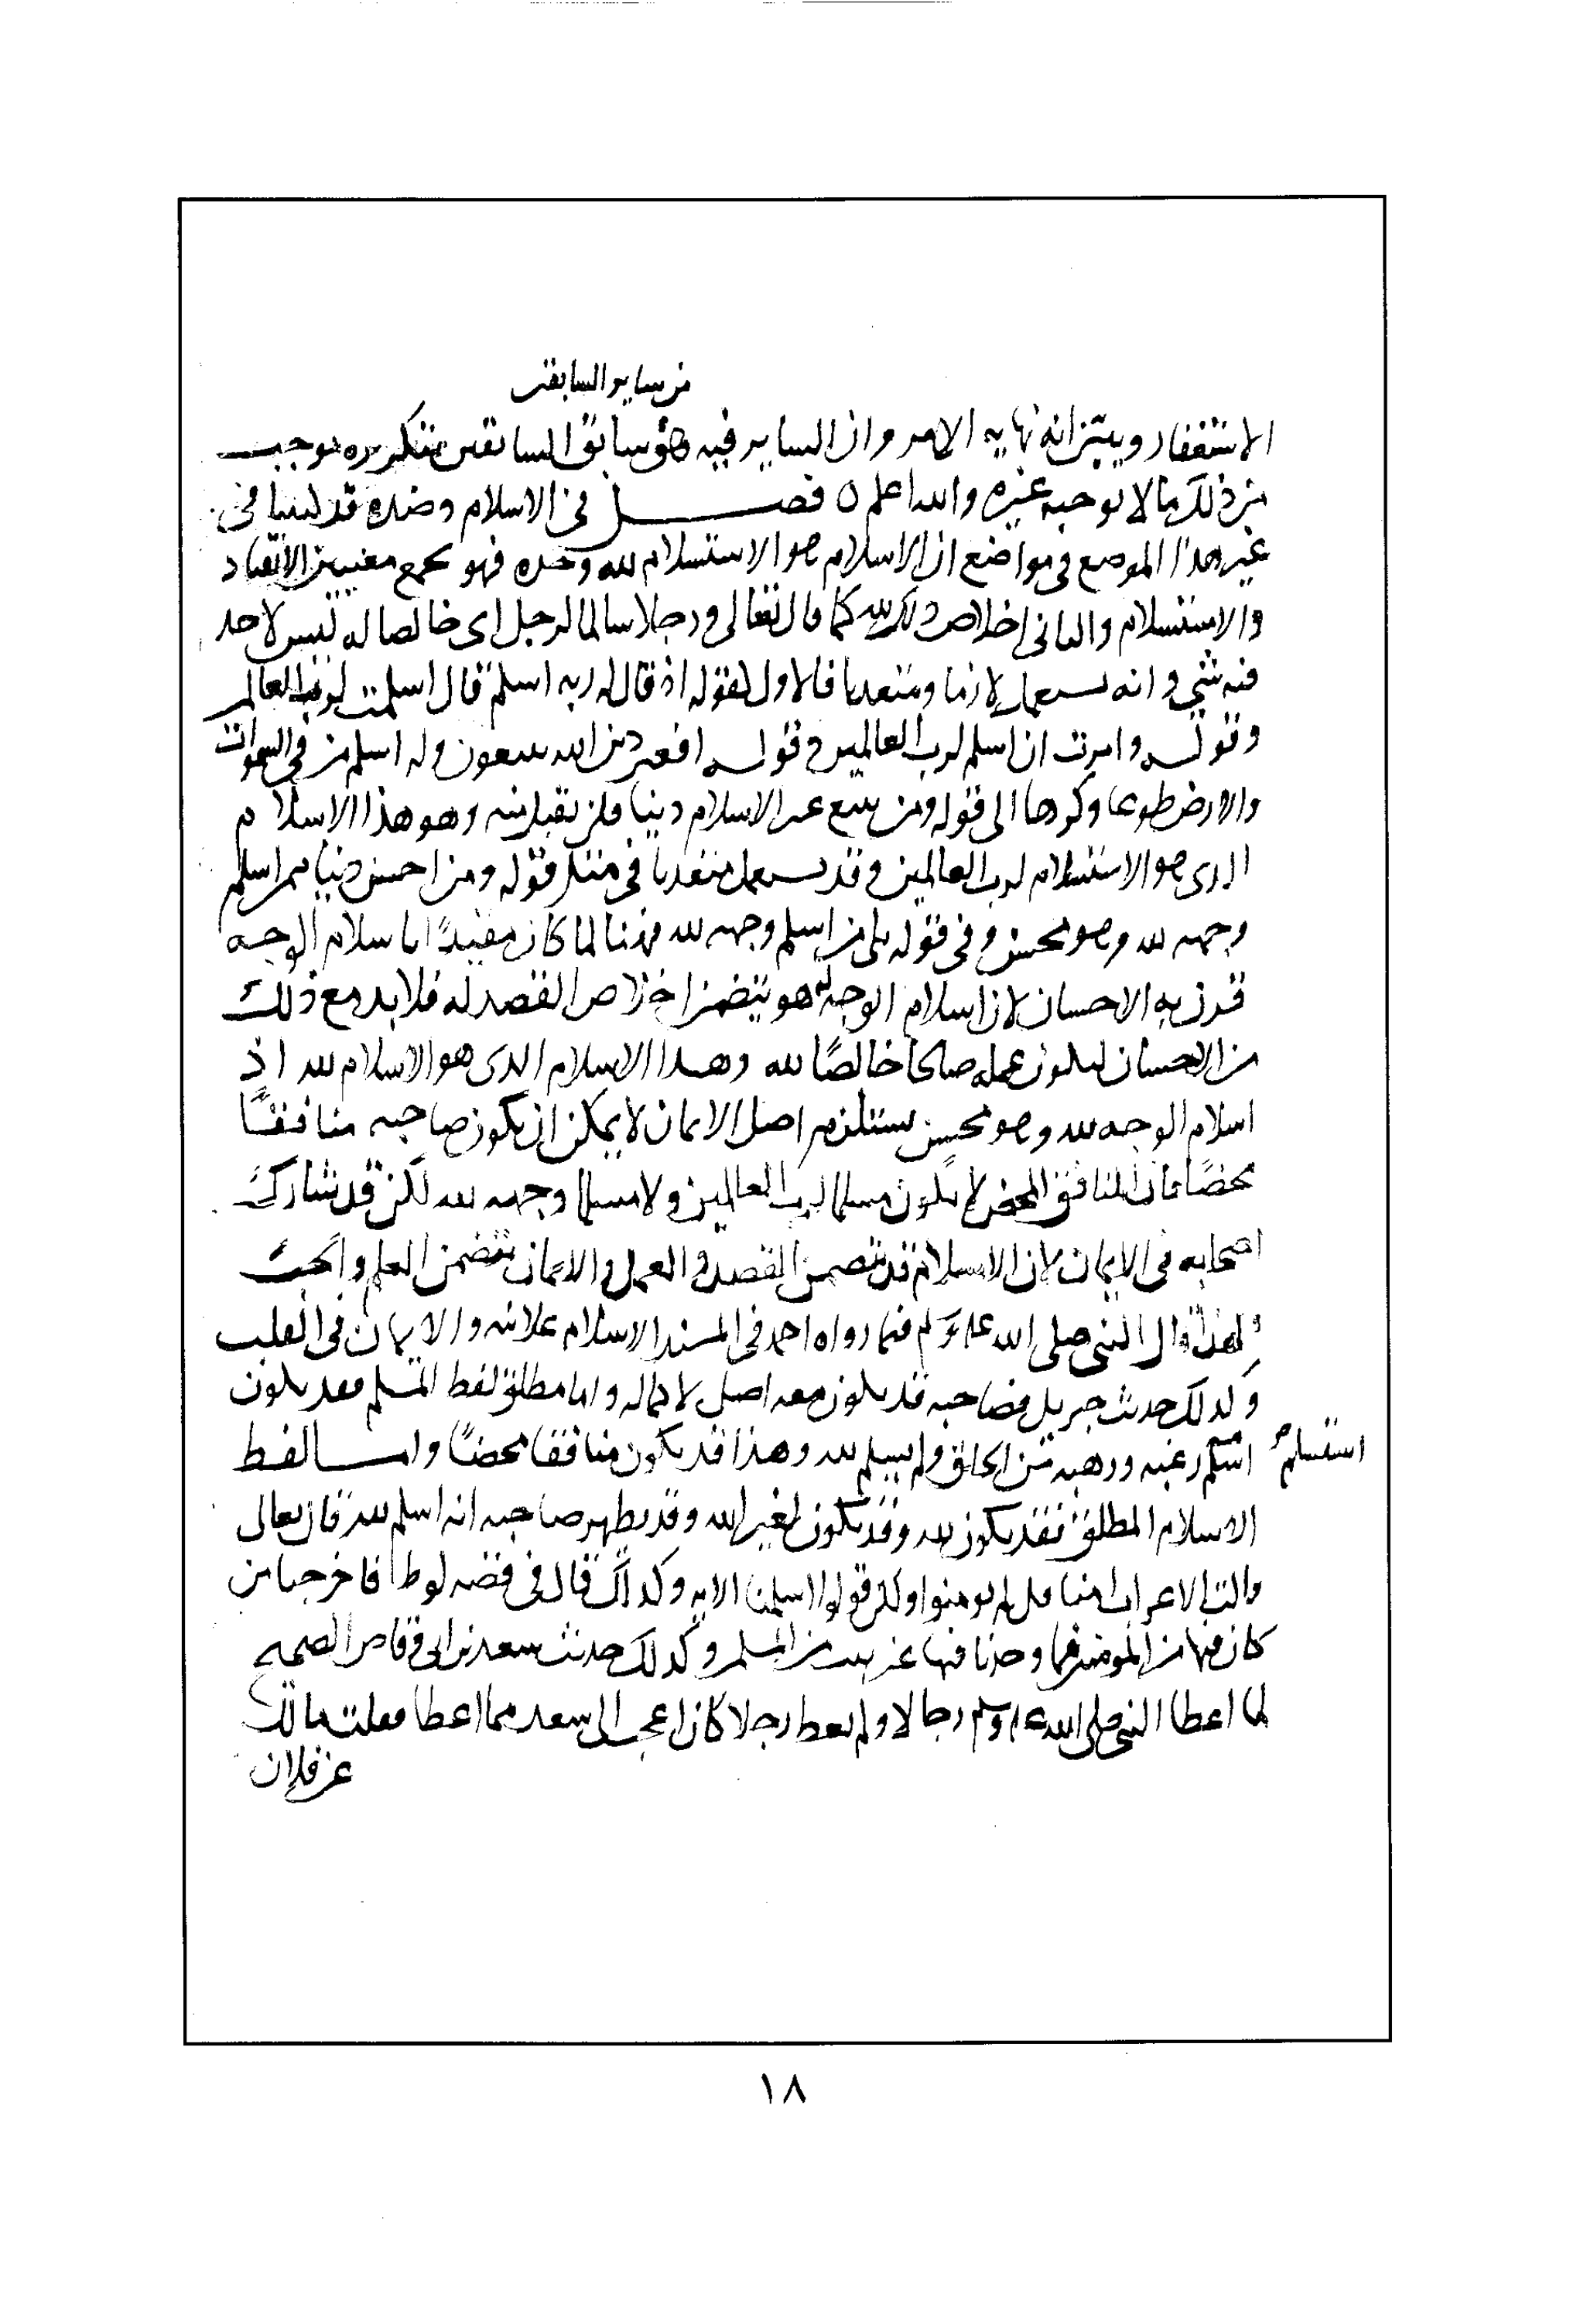 من ساير السابقين
الاستغفار ويبين انه نهاية الامر وان الساير فيه هو سابق السابقين فتكريره يوجب
من ذلك ما لا يوجبه غيره والله اعلم ه فصل في الاسلام وضده قد كتبنا في
غير هذا الموضع في مواضع ان الاسلام هو الاستسلام لله وحده فهو يجمع معنيين الانقياد
والاستسلام والثاني اخلاص ذلك لله كما قال تعالى ورجلا سالما لرجل اي خالصا له ليس لاحد
فيه شي وانه يستعمل لازما ومتعديا فالاول كقوله اذ قال له ربه اسلم قال اسلمت لرب العالمين
وقوله وامرت ان اسلم لرب العالمين وقوله افغير دين الله يبغون وله اسلم من في السموات
والارض طوعا وكرها الى قوله ومن يبتغ غير الاسلام دينا فلن يقبل منه وهو هذا الاسلام
الذي هو الاستسلام لرب العالمين وقد يستعمل متعديا في مثل قوله ومن احسن دينا ممن اسلم
وجهه لله وهو محسن وفي قوله بلى من اسلم وجهه لله فهنا لما كان مقيدًا باسلام الوجه
قرن به الاحسان لان اسلام الوجه له هو يتضمن اخلاص القصد له فلا بد مع ذلك
من الاحسان ليكون عمله صالحا خالصًا لله وهذا الاسلام الذي هو الاسلام لله اذ
اسلام الوجه لله وهو محسن يستلزم اصل الايمان لا يمكن ان يكون صاحبه منافقًا
محضًا فان المنافق المحض لا يكون مسلما لرب العالمين ولا مسلما وجهه لله لكن قد شارك
اصحابه في الايمان لان الاسلام قد يتضمن القصد والعمل والايمان يتضمن العلم والحب
ولهذا قال النبي صلى الله عليه وسلم فيما رواه احمد في المسند الاسلام علانيه والايمان في القلب
وكذلك حديث جبريل فصاحبه قد يكون معه اصل لا كماله واما مطلق لفظ المسلم فقد يكون
استسلم
اسلم رغبه ورهبه من الخلق ولم يسلم لله وهذا قد يكون منافقا محضًا واما لفظ
الاسلام المطلق فقد يكون لله وقد يكون لغير الله وقد يظهر صاحبه انه اسلم لله قال تعالى
قالت الاعراب امنا قل لم تومنوا ولكن قولوا اسلمنا الايه وكذلك قال في قصه لوط فاخرجنا من
كان فيها من المومنين فما وجدنا فيها غير بيت من المسلمين وكذلك حديث سعد بن ابي وقاص الصحيح
لما اعطا النبي صلى الله عليه وسلم رجالا ولم يعط رجلا كان اعجب الى سعد مما اعطا فقلت مالك
عن فلان
١٨